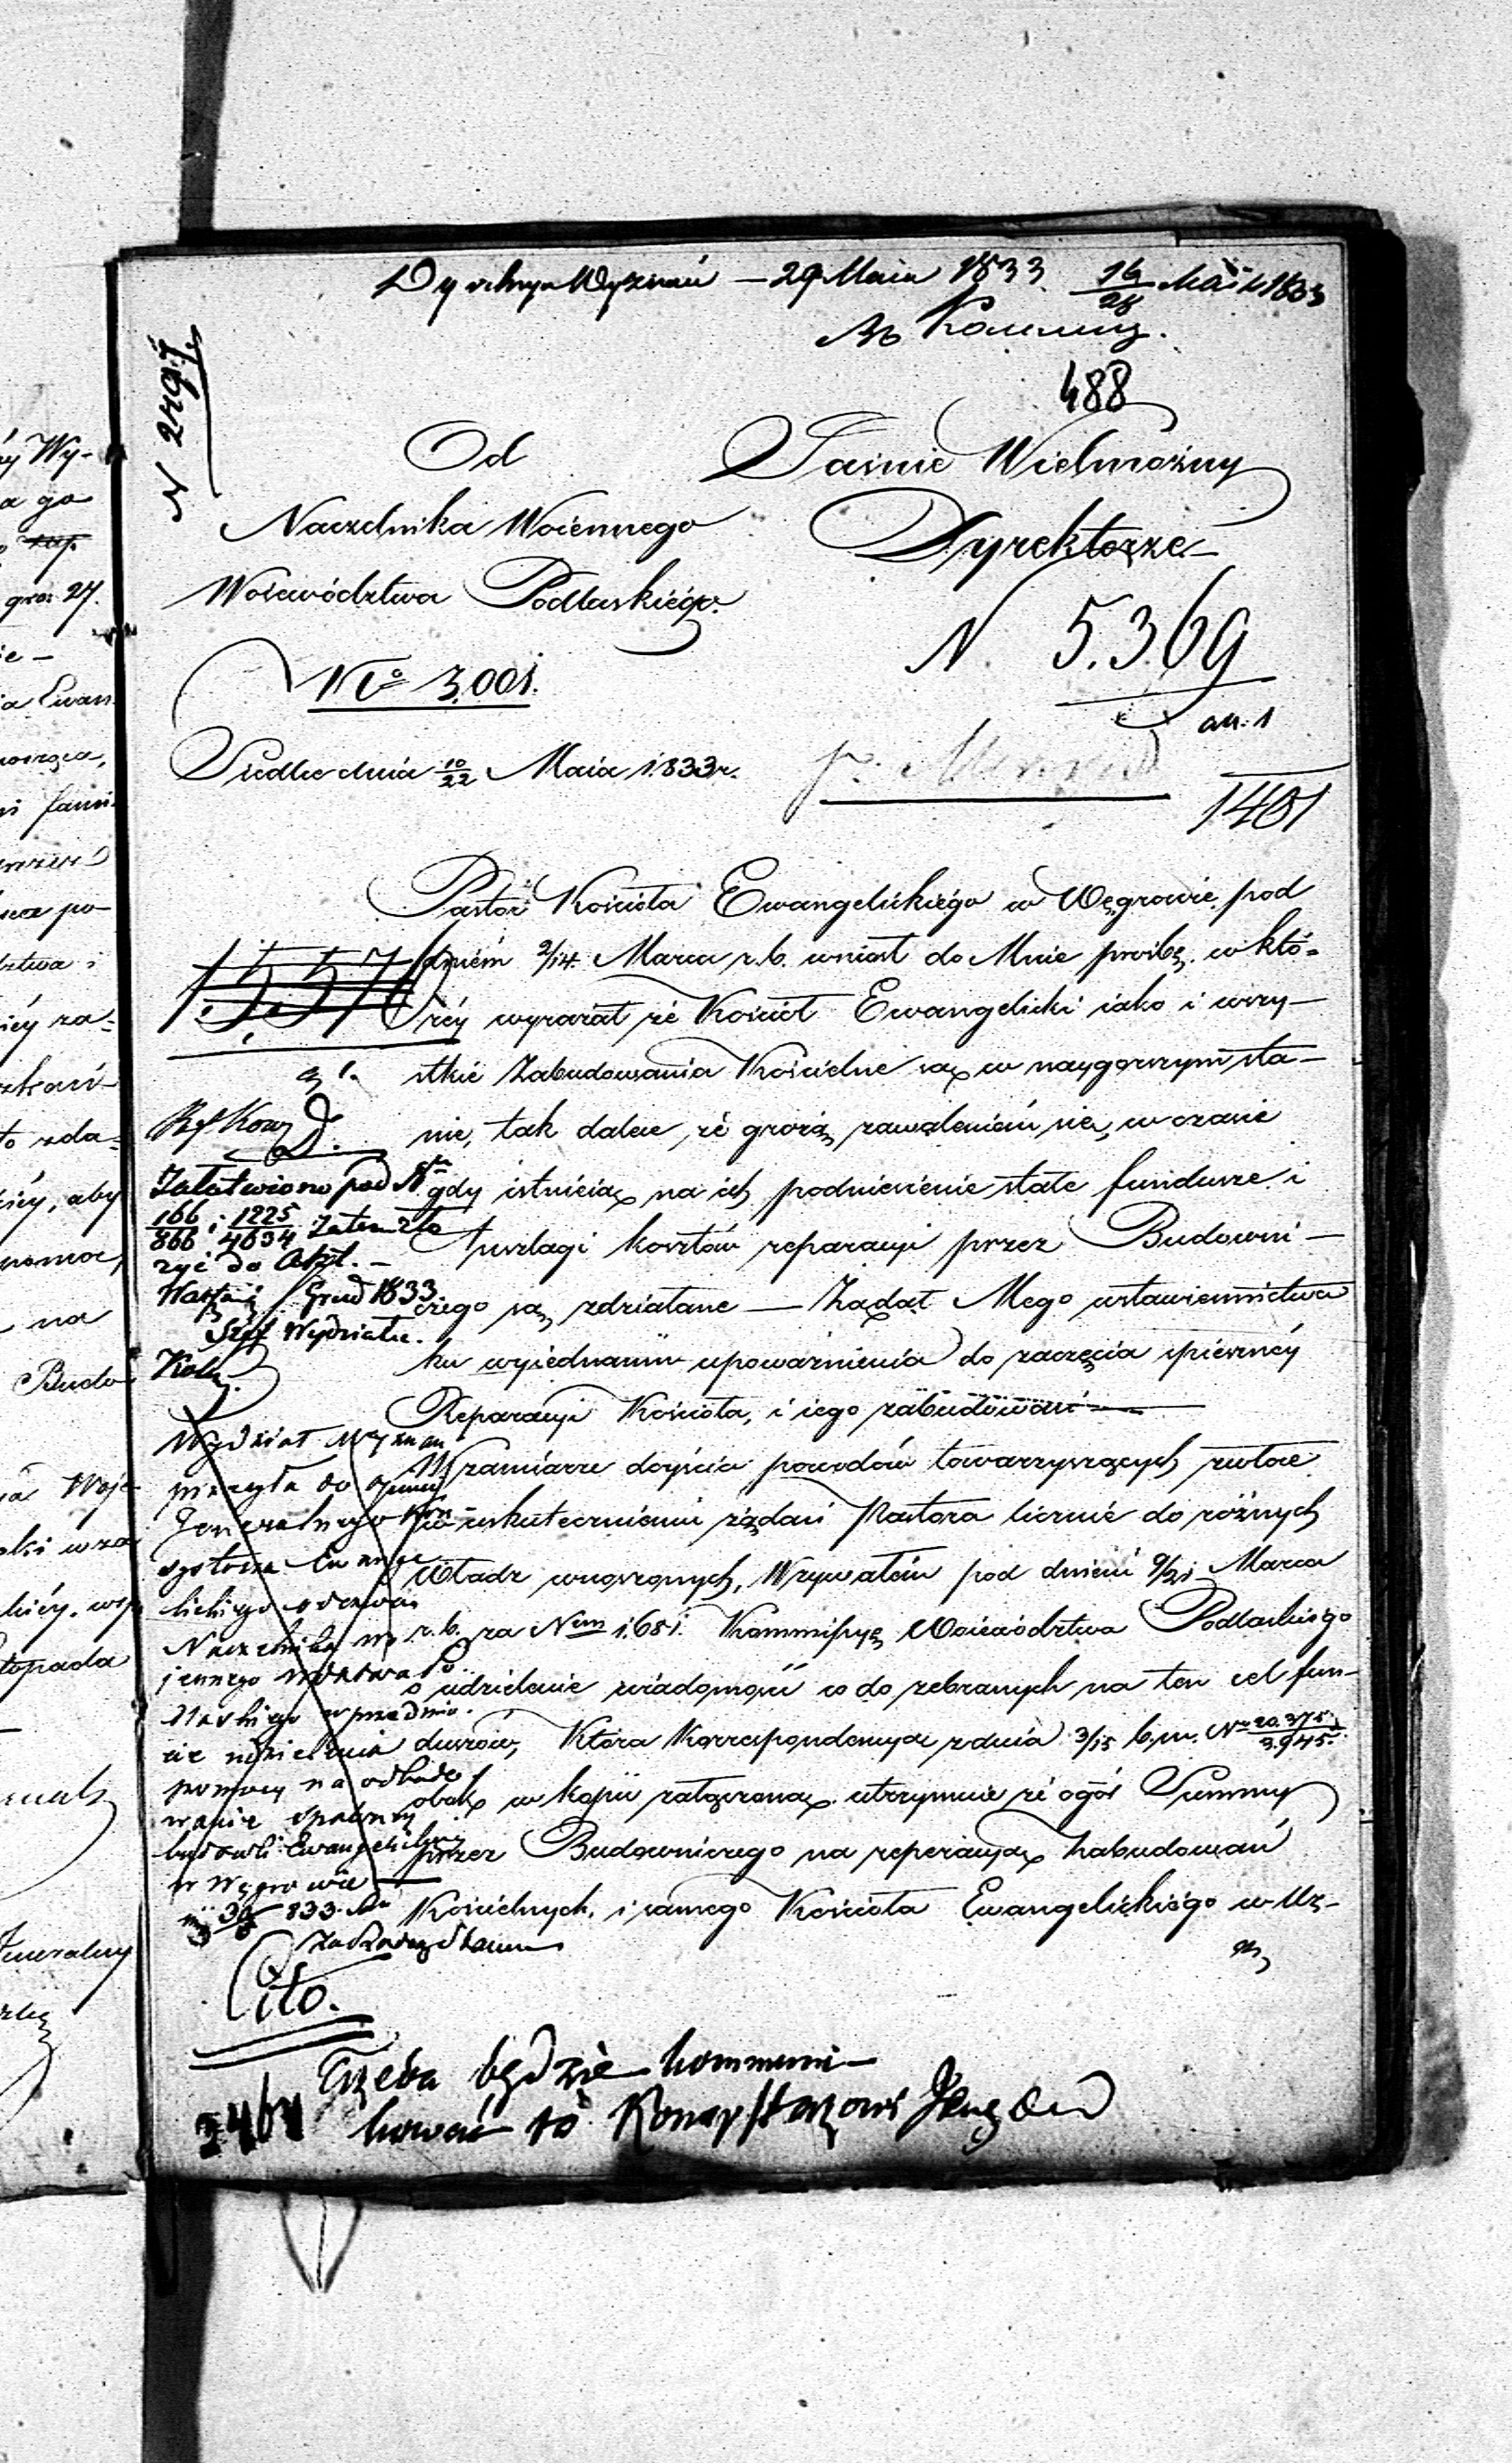 Dyrekcya Wyznań — 29 Maia 1833. 16/28 Maia 1833
N 2797
488
Od
Naczelnika Woiennego
Woiewództwa Podlaskiégo.
No 3,001.
Siedlce dnia 10/22 Maia 1833 r.
Jaśnie Wielmożny
Dyrektorze
N. 5.369
an. 1
1401
Pastor Kościoła Ewangelickiégo w Węgrowie pod
dniem 2/14 Marca r. b. wniosł do Mnie prośbę, w któ-
réy wyraził żé Kościół Ewangelicki iako i wszy-
stkie Zabudowania Kościelne są w naygorszym sta-
nie, tak dalece, żé grożą zawaleniem się, w czasie
gdy istnieią na ich podniesienie stałe fundusze i
Anszlagi kosztów reparacyi przez Budowni-
czego są zdziałane — Żądał Mego wstawiennictwa
ku wyiednaniu upoważnienia do zaczęcia spieszney
Reparacyi Kościoła, i iego zabudowań —
W zamiarze doyścia powodów towarzyszących zwłoce
uskutecznieniu żądań Pastora licznie do różnych
Władz wnoszonych, Wzywałem pod dniem 9/21 Marca
r. b. za Nem 1681 Kommissyę Woiewództwa Podlaskiego
o udzielenie wiadomości co do zebranych na ten cel fun-
duszów, Która Korrespondencyą z dnia 3/15 b. m. Nr 20,375/3,945
obok w kopii załączoną utrzymuie żé ogół Summy
przez Budowniczego na reperacyą Zabudowań
Kościelnych, i samego Kościoła Ewangelickiégo w Wę-
15576
a 1.
Ref Kow
Załatwiono pod No
166/866 i 1225/4634 Zatem zło
żyć do Akt. —
Grud 1833
Szef Wydziału.
Wydział Wyznań
przesyła do opinii
Jeneralnego Kon-
systorza Ewange
lickiego odezwę
Naczelnika Wo
jennego Wdztwa Po
dlaskiego w przedmio
cie udzielenia
pomocy na odbudo
wanie spalonej
budowli Ewangelickiej
w Węgrowie —
Cito.
Trzeba będzie kommuni-
kować to Konsystorzowi
2464